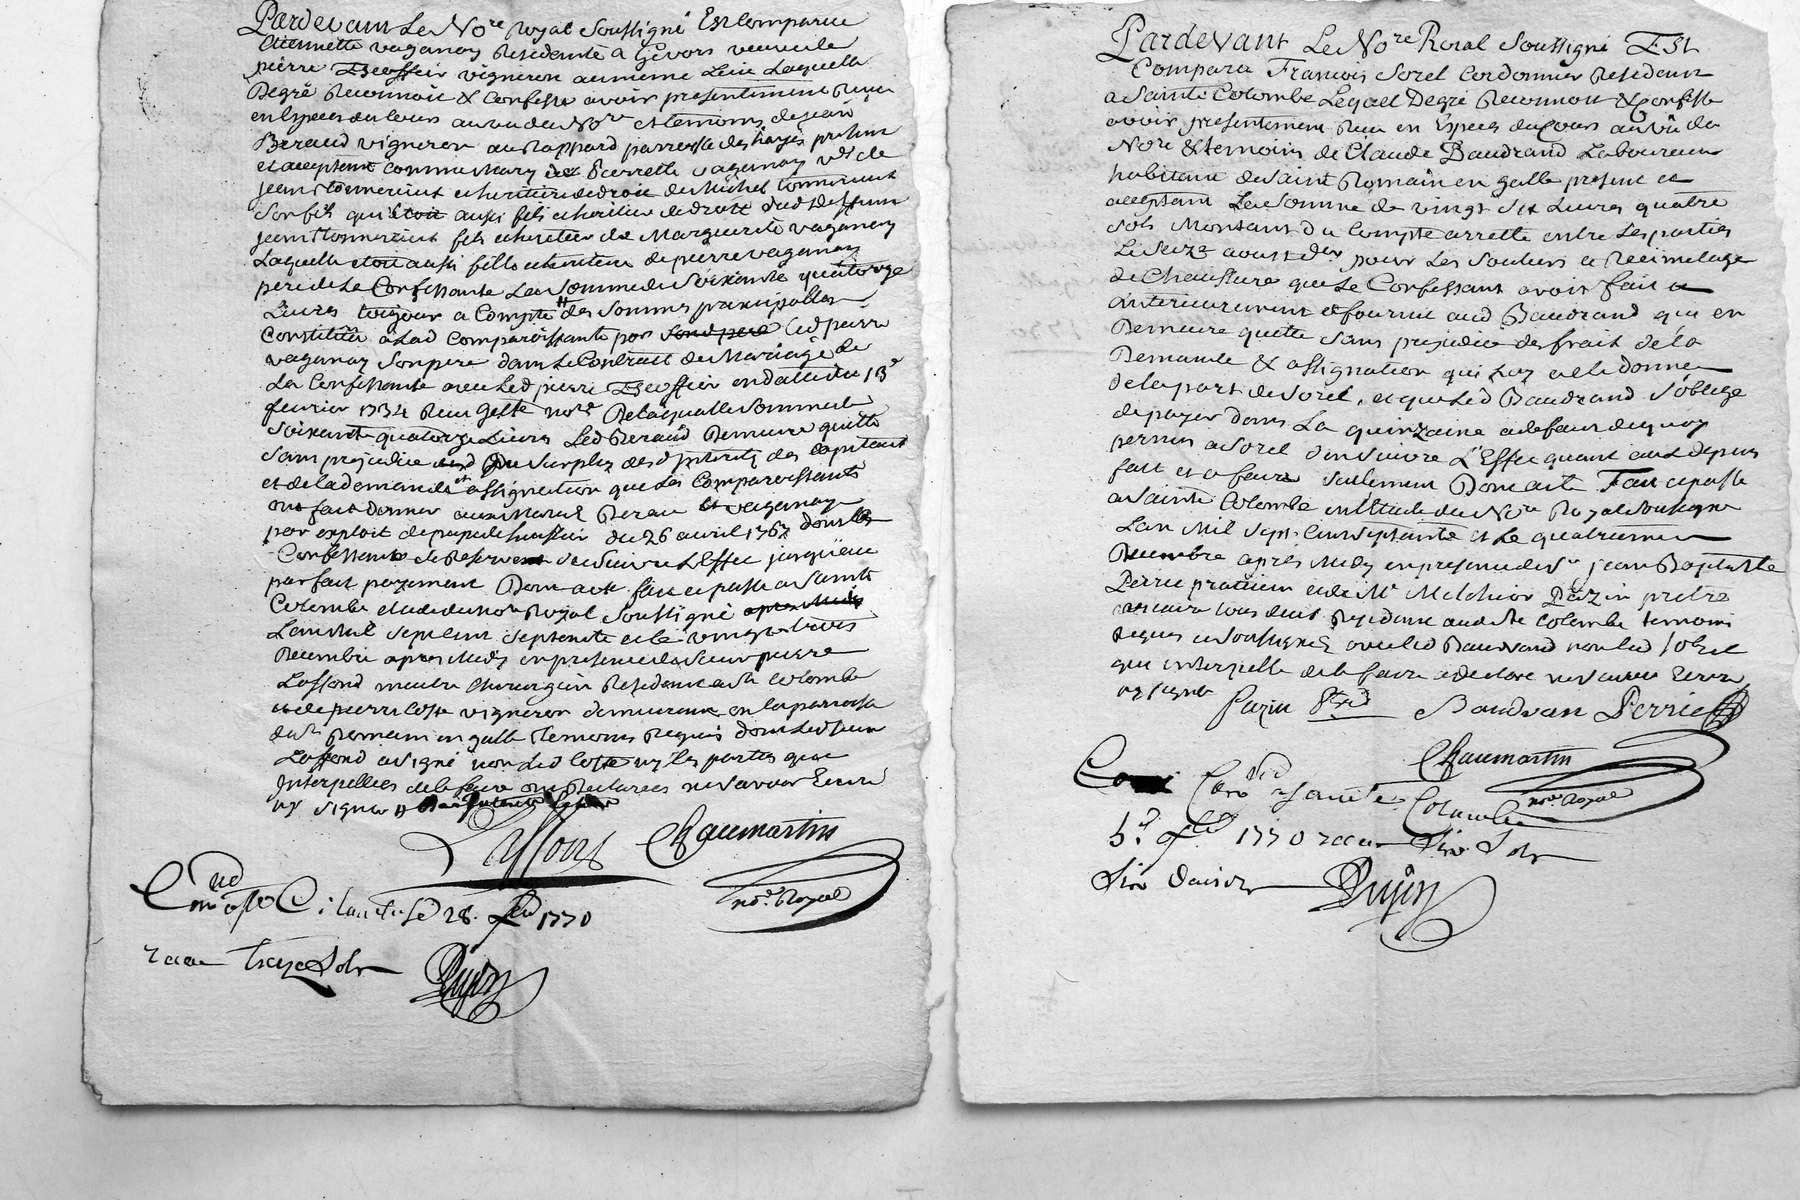 Pardevant Le No.re Royal Soussigné Est Comparue
vaganay Residante a Givors veuve de
pierre vigneron au meme Lieu Laquelle
Degré Reconnoit & Confesse avoir presentement Reçu
en Especes du Cours au vu du No.re et temoins de jean
Beraud vigneron au parroisse des hayes present
et acceptant comme mary de Pierrette vaganay v.e de
jean et heritiere de droit de Michel
Son fils qui etoit aussi fils et heritier de droit dud deffunt
jean fils et heritier de Marguerite vaganay
Laquelle etoit aussi fille et heritiere de pierre vaganay
pere de La Confessante La Somme de Soixante quatorze
Livres toujour a Compte des Sommes principalles
Constituée a Lad Comparoissante par Son d pere Led pierre
vaganay Son pere dans Le Contrait de Mariage de
La Confessante avec Led pierre en datte du 13e
fevrier 1734 Reçu Geste no.re De Laquelle Somme de
Soixante quatorze Livres Led Beraud Demeure quitte
Sans prejudice du Surplus des d interets des Capitaux
et de la demande et assignation que Les Comparoissants
ont fait donner aux Beraud et vaganay
par exploit de du 26 avril 1767 dont la
Confessante Se Reserve de Suivre L'Effet jusqu'au
parfait payement Dont acte fait et passé a Sainte
Colombe etude du no.re Royal Soussigné apres Midy
L'an Mil Sept Cent Septente et Le vingt trois
Decembre apres Midy en presence de Sieur pierre
Laffond maitre chirurgien Residant a S.te Colombe
et de pierre Coste vigneron demeurant en La paroisse
de S.t Romain en galle temoins Requis dont Led Sieur
Laffond a Signé non Led Coste ny les parties que
Interpellées de le faire ont Declarées ne Savoir Ecrire
ny Signer
Laffond Chaumartin
no.re Royal
C le 28. 1770
Reçu treize Sols
Pardevant Le No.re Roral Soussigné Est
Comparu Francois Sorel Cordonnier Residant
a Sainte Colombe Lequel Degré Reconnoit & Confesse
avoir presentement Reçu en Especes du Cours au vû du
No.re & temoins de Claude Baudrand Laboureur
habitant de Saint Romain en galle present et
acceptant La Somme de vingt Six Livres quatre
Sols Montant du Compte arretté entre Les parties
Le Seize aoust der pour Les Souliers et
de Chaussure que Le Confessant avoit fait
anterieurement et fournit aud Baudrand qui en
Demeure quitte Sans prejudice des frait de la
Demande & assignation qui luy a ete donnée
de la part de Sorel, et que Led Baudrand S'oblige
de payer dans La quinzaine a defaut de quoy
permis a Sorel d'en Suivre L'Effet quant aux depens
fait et a faire Seulement Dont acte Fait et passé
a Sainte Colombe etude du No.re Royal Soussigné
L'an Mil Sept Cent Septante et Le quatrieme
Decembre apres Midy en presence de S.r jean Baptiste
Perrie praticien et de M.r Melchior Pazin pretre
vicaire tous deux Residant aud Ste Colombe temoins
Requis et Soussignés avec Led Baudrand non Led Sorel
qui interpellé de le faire a declaré ne Savoir Ecrire
ny Signer
Pazin Baudran Perrie
Chaumartin
no.re Royal
Sainte Colombe
1770 Reçu Sols
Six deniers